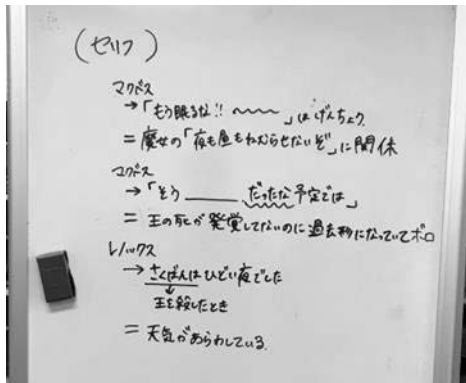 (セリフ)
マクベス
→「もう眠るな!! 〜〜〜」はげんちょう
= 魔女の「夜も昼もねむらせないぞ」に関係
マクベス
→「そう ＿＿＿ だったな予定では」
= 王の死が発覚してないのに過去形になっていてボロ
レノックス
→ さくばんはひどい夜でした
↓
王を殺したとき
= 天気があらわしている